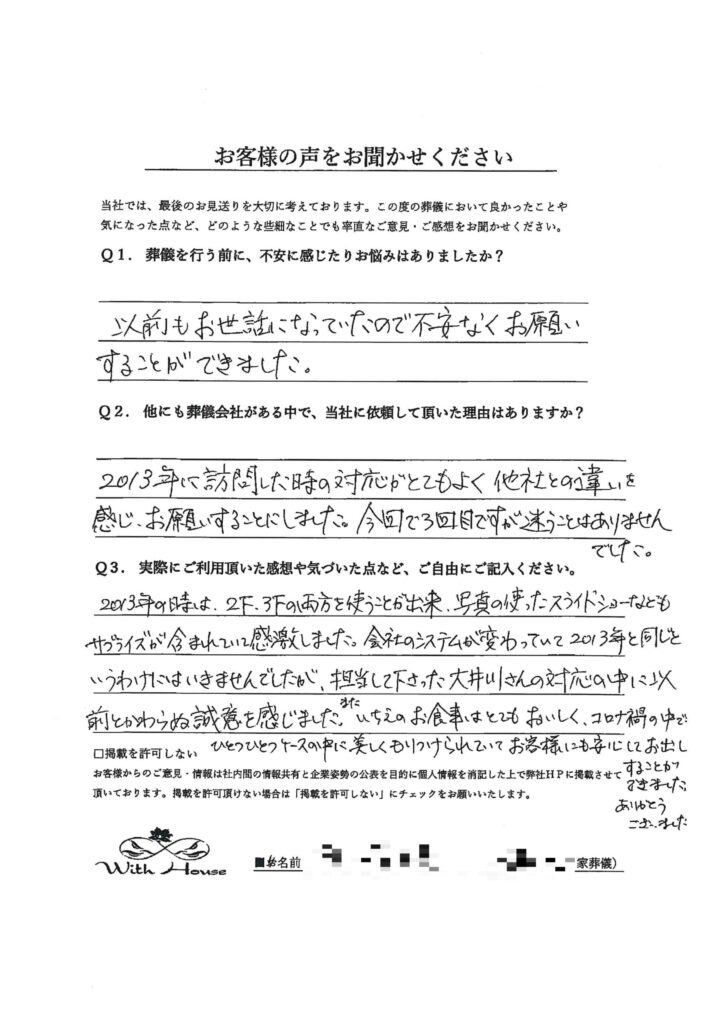 お客様の声をお聞かせください
当社では、最後のお見送りを大切に考えております。この度の葬儀において良かったことや
気になった点など、どのような些細なことでも率直なご意見・ご感想をお聞かせください。
Q1. 葬儀を行う前に、不安に感じたりお悩みはありましたか？
以前もお世話になっていたので不安なくお願い
することができました。
Q2. 他にも葬儀会社がある中で、当社に依頼して頂いた理由はありますか？
2013年に訪問した時の対応がとてもよく他社との違いを
感じ、お願いすることにしました。今回で3回目ですが迷うことはありません
でした。
Q3. 実際にご利用頂いた感想や気づいた点など、ご自由にご記入ください。
2013年の時は、2F、3Fの両方を使うことが出来、写真の使ったスライドショーなども
サプライズが含まれていて感激しました。会社のシステムが変わっていて2013年と同じと
いうわけにはいきませんでしたが、担当して下さった大井川さんの対応の中に以
前とかわらぬ誠意を感じました。また いちえのお食事はとてもおいしく、コロナ禍の中で
ひとつひとつケースの中に美しくもりつけられていてお客様にも安心してお出し
することが
できました
ありがとう
ございました
□掲載を許可しない
お客様からのご意見・情報は社内間の情報共有と企業姿勢の公表を目的に個人情報を消記した上で弊社HPに掲載させて
頂いております。掲載を許可頂けない場合は「掲載を許可しない」にチェックをお願いいたします。
With House
名前
家葬儀）